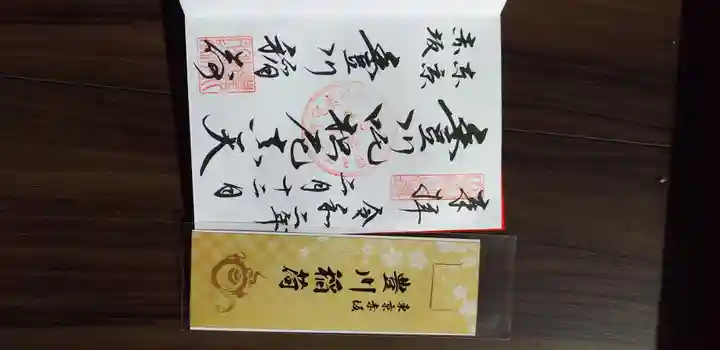 奉拝
令和二年
二月十二日
豊川吒枳尼真天
東京
赤坂
豊川稲荷
東京赤坂
豊川稲荷